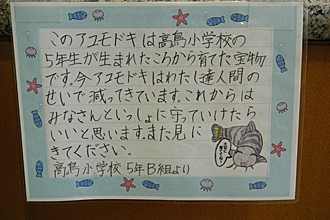 このアユモドキは高島小学校の
5年生が生まれたころから育てた宝物
です。今アユモドキはわたし達人間の
せいで減ってきています。これからは
みなさんといっしょに守っていけたら
いいと思います。また見に
きてください。
高島小学校 5年B組より